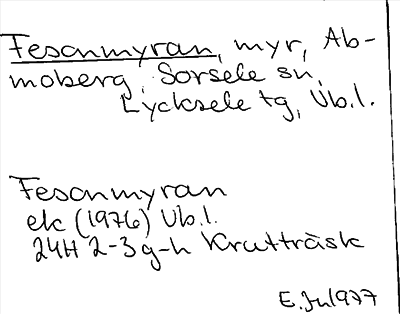 Fesonmyran, myr, Ab-
moberg, Sorsele sn,
Lycksele tg, Vb.l.
Fesonmyran
ek (1976) Vb.l.
24H 2-3 g-h Krutträsk
E.Ju 1977